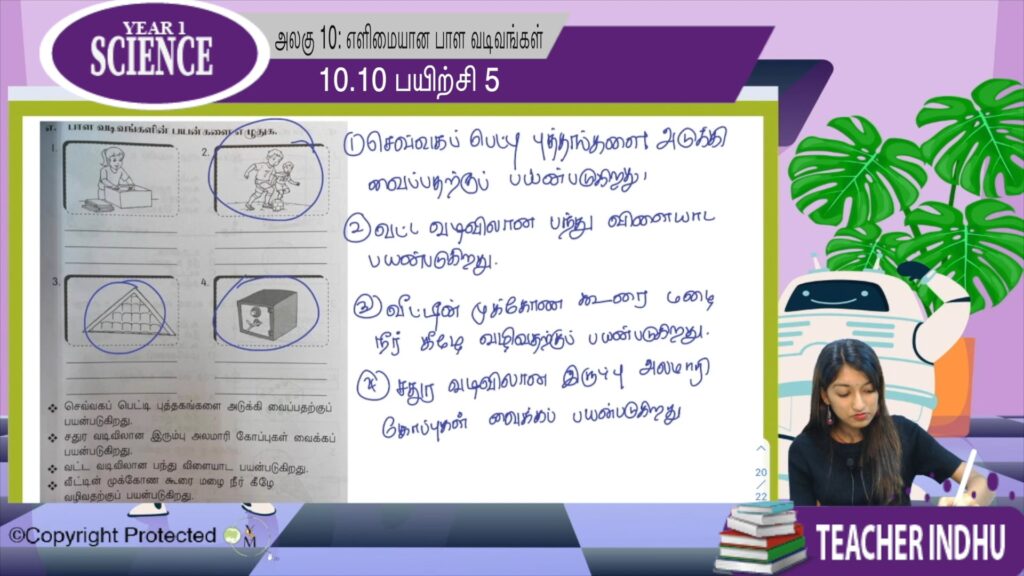 YEAR 1
SCIENCE
அலகு 10: எளிமையான பாள வடிவங்கள்
10.10 பயிற்சி 5
எ. பாள வடிவங்களின் பயன்களை எழுதுக.
1.
2.
3.
4.
❖ செவ்வகப் பெட்டி புத்தகங்களை அடுக்கி வைப்பதற்குப்
பயன்படுகிறது.
❖ சதுர வடிவிலான இரும்பு அலமாரி கோப்புகள் வைக்கப்
பயன்படுகிறது.
❖ வட்ட வடிவிலான பந்து விளையாட பயன்படுகிறது.
❖ வீட்டின் முக்கோண கூரை மழை நீர் கீழே
வழிவதற்குப் பயன்படுகிறது.
1) செவ்வகப் பெட்டி புத்தகங்களை அடுக்கி
வைப்பதற்குப் பயன்படுகிறது.
2 வட்ட வடிவிலான பந்து விளையாட
பயன்படுகிறது.
3 வீட்டின் முக்கோண கூரை மழை
நீர் கீழே வழிவதற்குப் பயன்படுகிறது.
4 சதுர வடிவிலான இரும்பு அலமாரி
கோப்புகள் வைக்கப் பயன்படுகிறது
20
/
22
©Copyright Protected
TEACHER INDHU